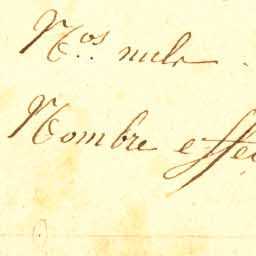 N.os nuls
Nombre effec